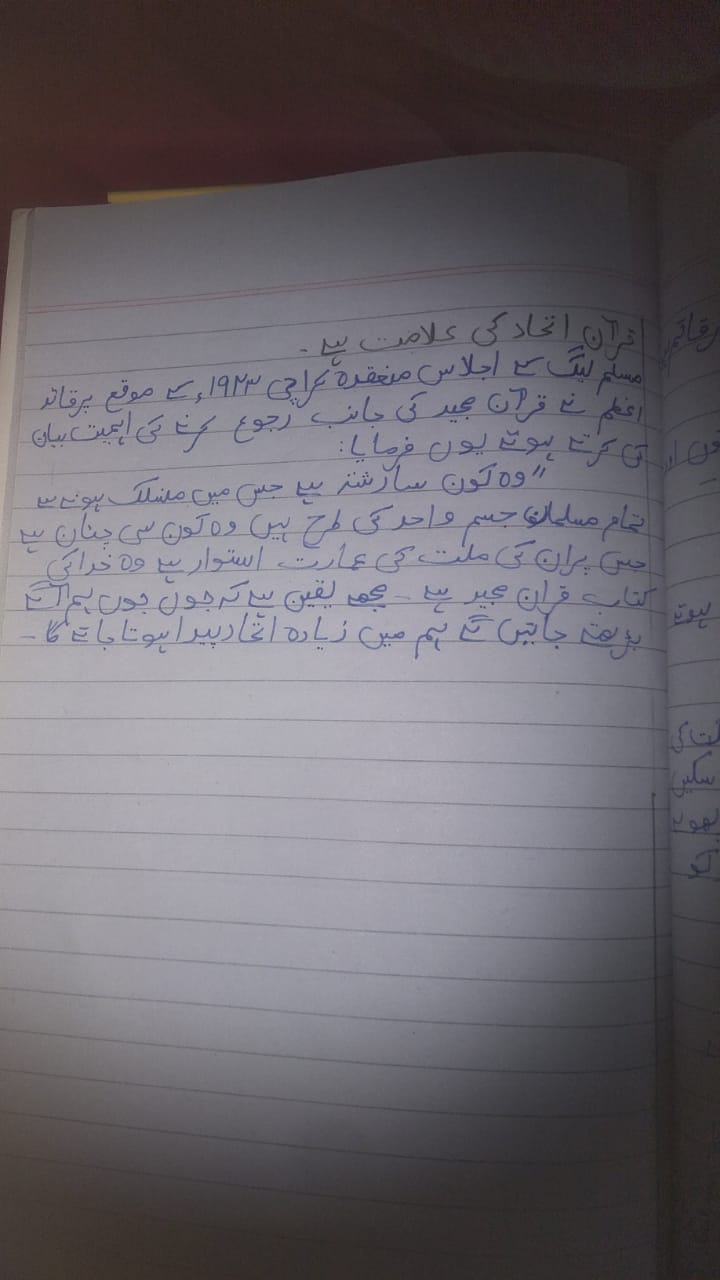 قرآن اتحاد کی علامت ہے۔
مسلم لیگ کے اجلاس منعقدہ کراچی ۱۹۲۳ء کے موقع پر قائد
اعظم نے قرآن مجید کی جانب رجوع کرنے کی اہمیت بیان
کی کرتے ہوئے یوں فرمایا:
"وہ کون سا رشتہ ہے جس میں منسلک ہونے سے
تمام مسلمان جسم واحد کی طرح ہیں وہ کون سی چٹان ہے
جس پر ان کی ملت کی عمارت استوار ہے وہ خدا کی
کتاب قران مجید ہے۔ مجھے یقین ہے کہ جوں جوں ہم آگے
بڑھتے جائیں گے ہم میں زیادہ اتحاد پیدا ہوتا جائے گا۔
ہوئے
سکیں